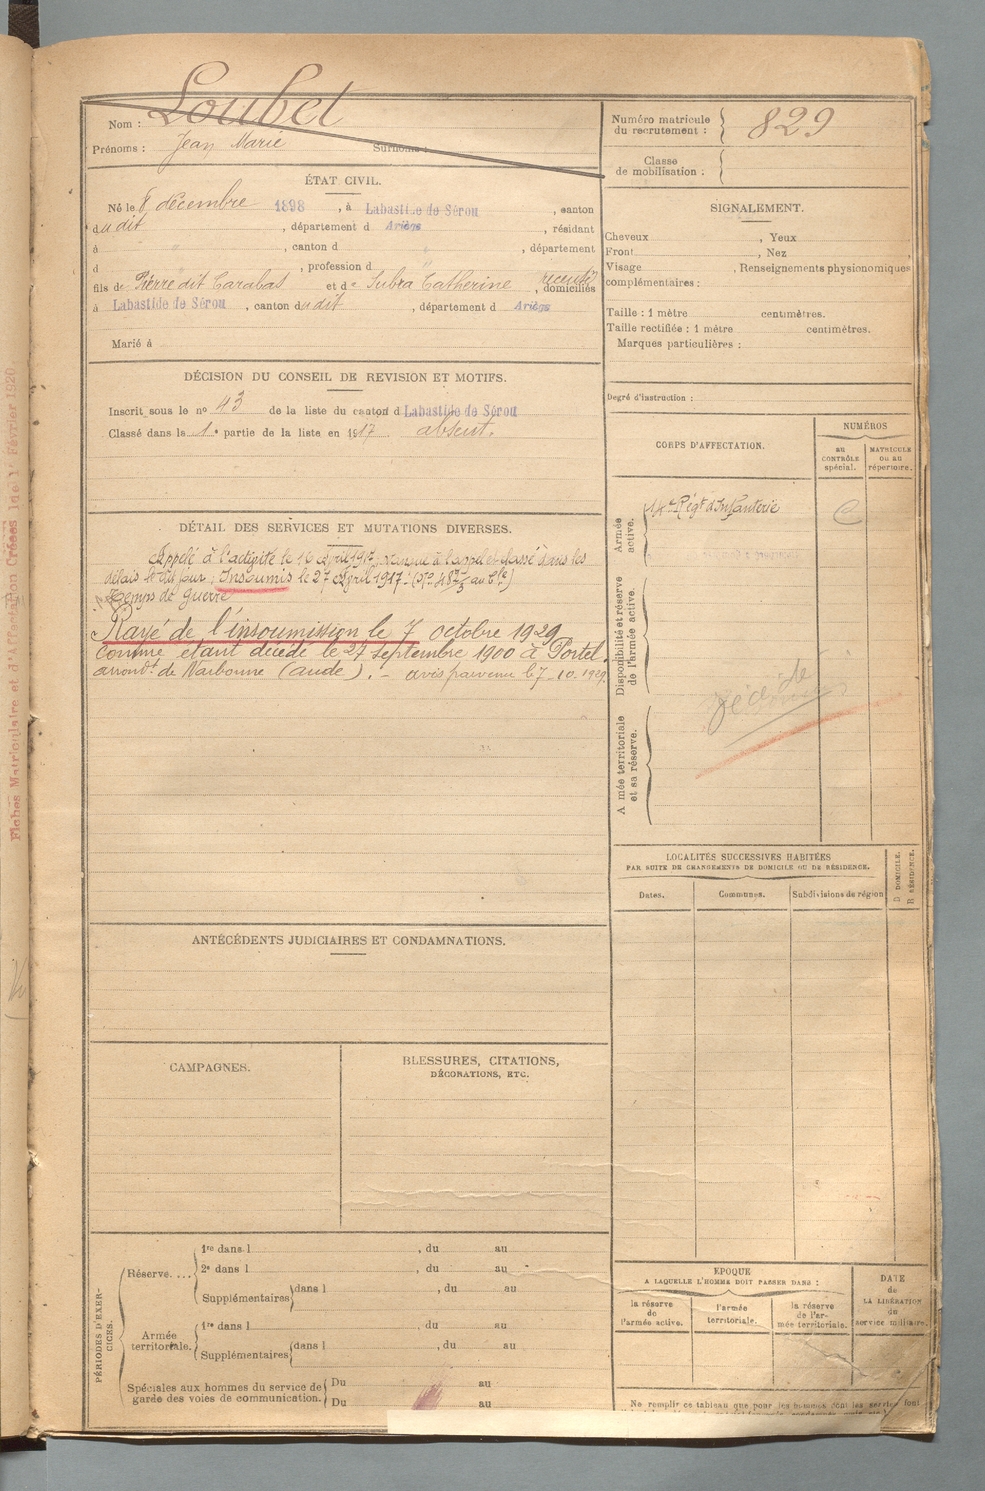 Nom : Loubet
Prénoms : Jean Marie Surnoms :
Numéro matricule du recrutement : 829
Classe de mobilisation :
ÉTAT CIVIL.
Né le 8 décembre 1898, à Labastide de Sérou, canton
dudit, département d Ariège, résidant
à " , canton d " , département
d , profession d "
fils de Pierre dit Carabas et de Subra Catherine, domiciliés
à Labastide de Sérou, canton dudit, département d Ariège
Marié à
SIGNALEMENT.
Cheveux , Yeux
Front , Nez ,
Visage , Renseignements physionomiques
complémentaires :
Taille : 1 mètre centimètres.
Taille rectifiée : 1 mètre centimètres.
Marques particulières :
Degré d'instruction :
DÉCISION DU CONSEIL DE REVISION ET MOTIFS.
Inscrit sous le no 43 de la liste du canton d Labastide de Sérou
Classé dans la 1e partie de la liste en 1917 absent.
DÉTAIL DES SERVICES ET MUTATIONS DIVERSES.
Appelé à l'activité le 16 Avril 1917, à l'appel et dans les
délais le dit jour ; Insoumis le 27 Avril 1917.
Temps de Guerre
Rayé de l'insoumission le 7 octobre 1929
comme étant décédé le 27 septembre 1900 à Portel,
arrondt de Narbonne (Aude). - avis parvenu le 7-10-1929.
CORPS D'AFFECTATION.
NUMÉROS
au CONTRÔLE spécial.
MATRICULE ou au répertoire.
Armée active.
Régt d'Infanterie
C
Disponibilité et réserve de l'armée active.
Décédé
Armée territoriale et sa réserve.
LOCALITÉS SUCCESSIVES HABITÉES
PAR SUITE DE CHANGEMENTS DE DOMICILE OU DE RÉSIDENCE.
Dates.
Communes.
Subdivisions de région
D DOMICILE.
R RÉSIDENCE.
ANTÉCÉDENTS JUDICIAIRES ET CONDAMNATIONS.
CAMPAGNES.
BLESSURES, CITATIONS,
DÉCORATIONS, ETC.
PÉRIODES D'EXERCICES.
Réserve....
1re dans l , du au
2e dans l , du au
Supplémentaires dans l , du au
Armée territoriale.
1re dans l , du au
Supplémentaires dans l , du au
Spéciales aux hommes du service de
garde des voies de communication.
Du au
Du au
ÉPOQUE
A LAQUELLE L'HOMME DOIT PASSER DANS :
la réserve de l'armée active.
l'armée territoriale.
la réserve de l'armée territoriale.
DATE de LA LIBÉRATION du service militaire.
Ne remplir ce tableau que pour les hommes dont les services font